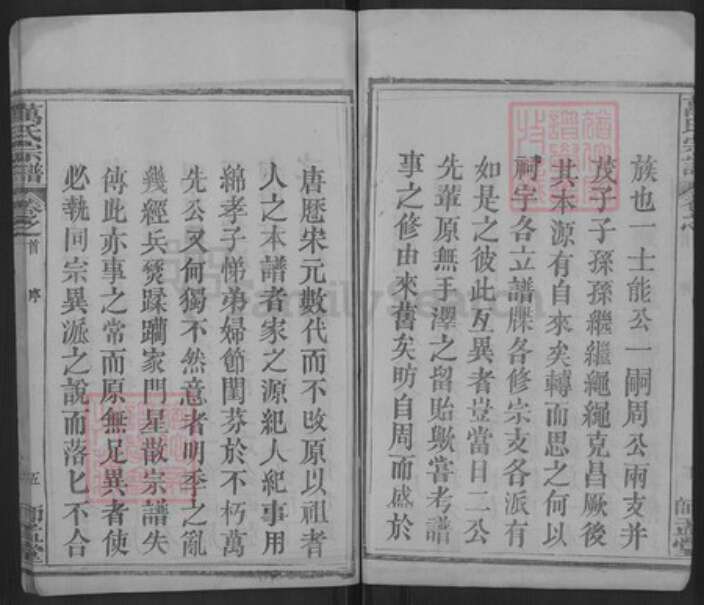 族也一士能公一嗣周公兩支并
茂子子孫孫繼繼繩繩克昌厥後
其本源有自來矣轉而思之何以
祠字各立譜牒各修宗支各派有
如是之彼此互異者豈當日二公
先輩原無手澤之留貽歟嘗考譜
事之修由來舊矣昉自周而盛於
唐歷宋元數代而不改原以祖者
人之本譜者家之源紀人紀事用
綿孝子悌弟婦節閨芬於不朽萬
先公又何獨不然意者明季之亂
幾經兵燹蹂躪家門星散宗譜失
傳此亦事之常而原無足異者使
必執同宗異派之說而落匕不合
萬氏宗譜
卷之首
序
五
FamilySearch